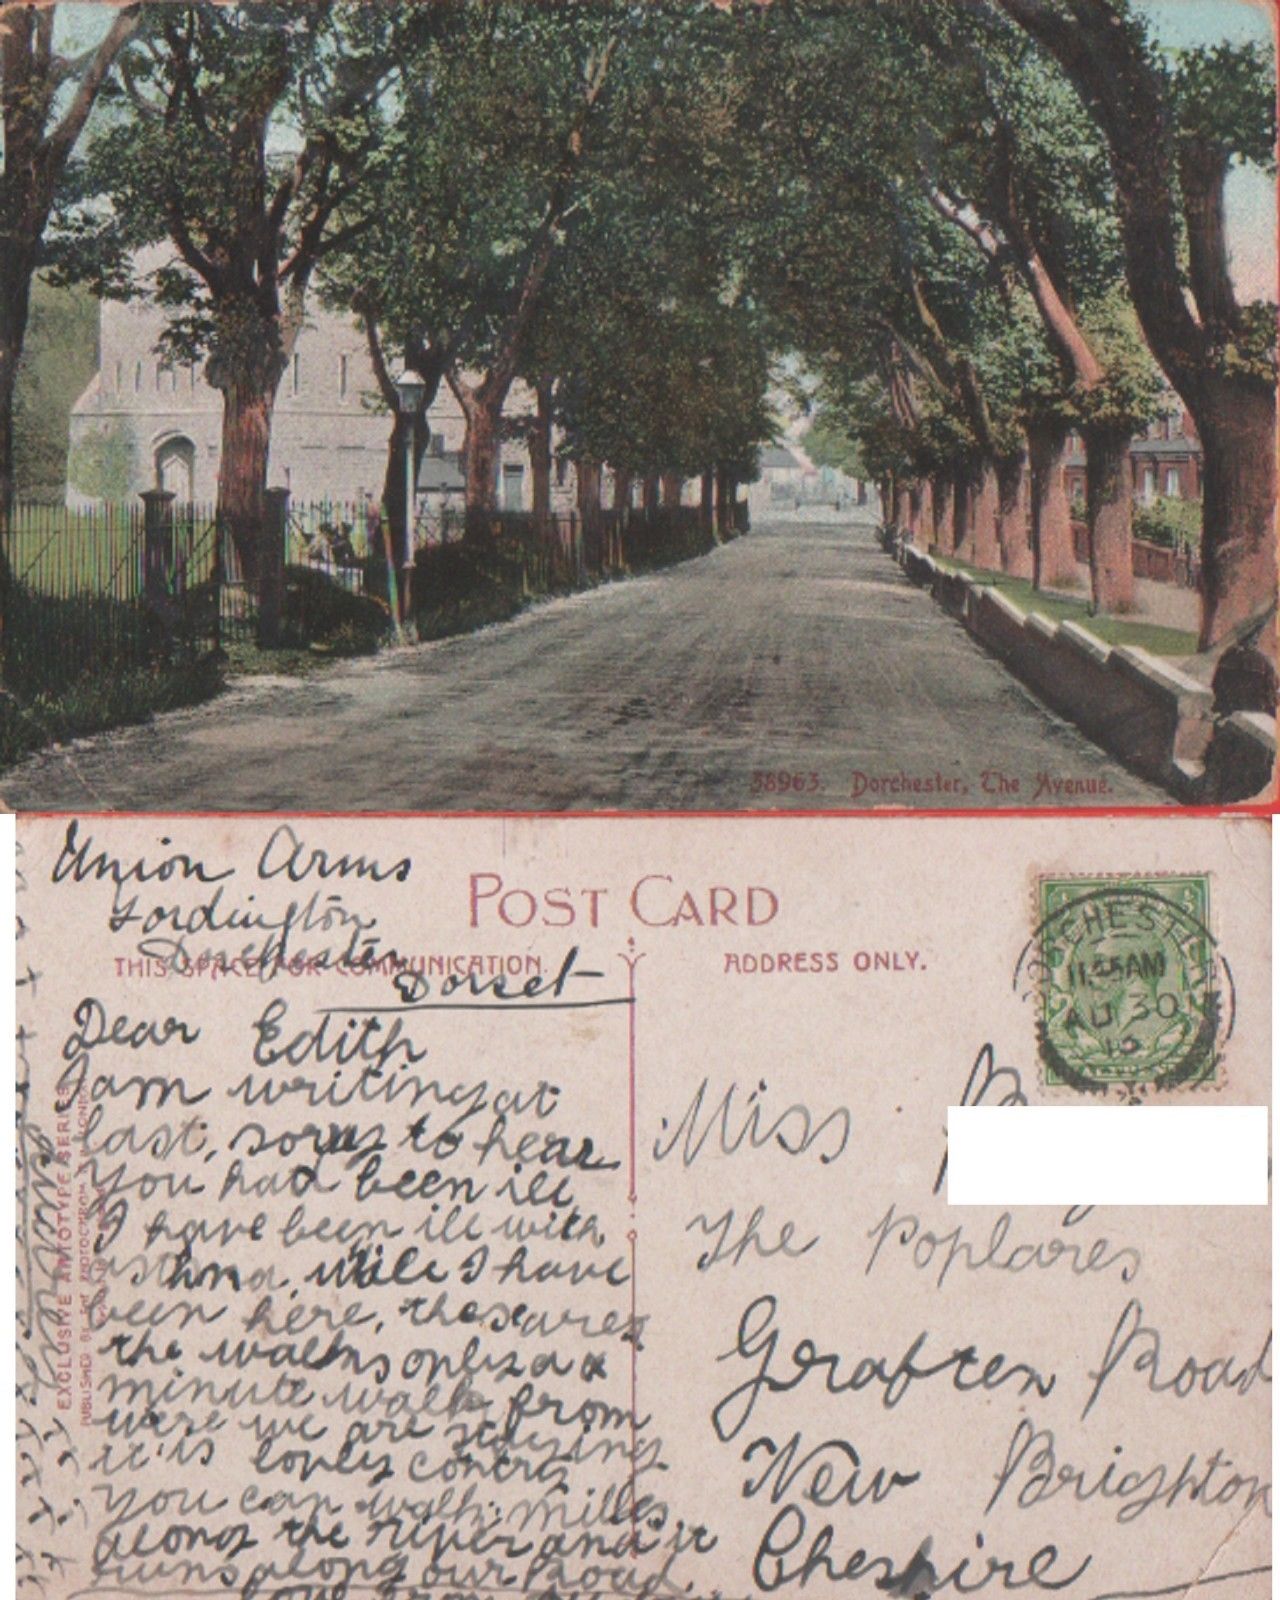 38963. Dorchester, The Avenue.
Union Arms
Fordington
Dorchester
Dorset
POST CARD
THIS SPACE FOR COMMUNICATION.
ADDRESS ONLY.
DORCHESTER
11.45AM
AU 30
Dear Edith
I am writing at
last, sorry to hear
you had been ill
I have been ill with
asthma, wile I have
been here, these are
the walks only a
minute walk from
were we are staying
it is lovley contry
you can walk milles
along the river and it
runs along our Road.
love from
Miss
The Poplares
Graften Road
New Brighton
Cheshire
EXCLUSIVE ARTOTYPE SERIES
PUBLISHED BY THE PHOTOCHROM CO